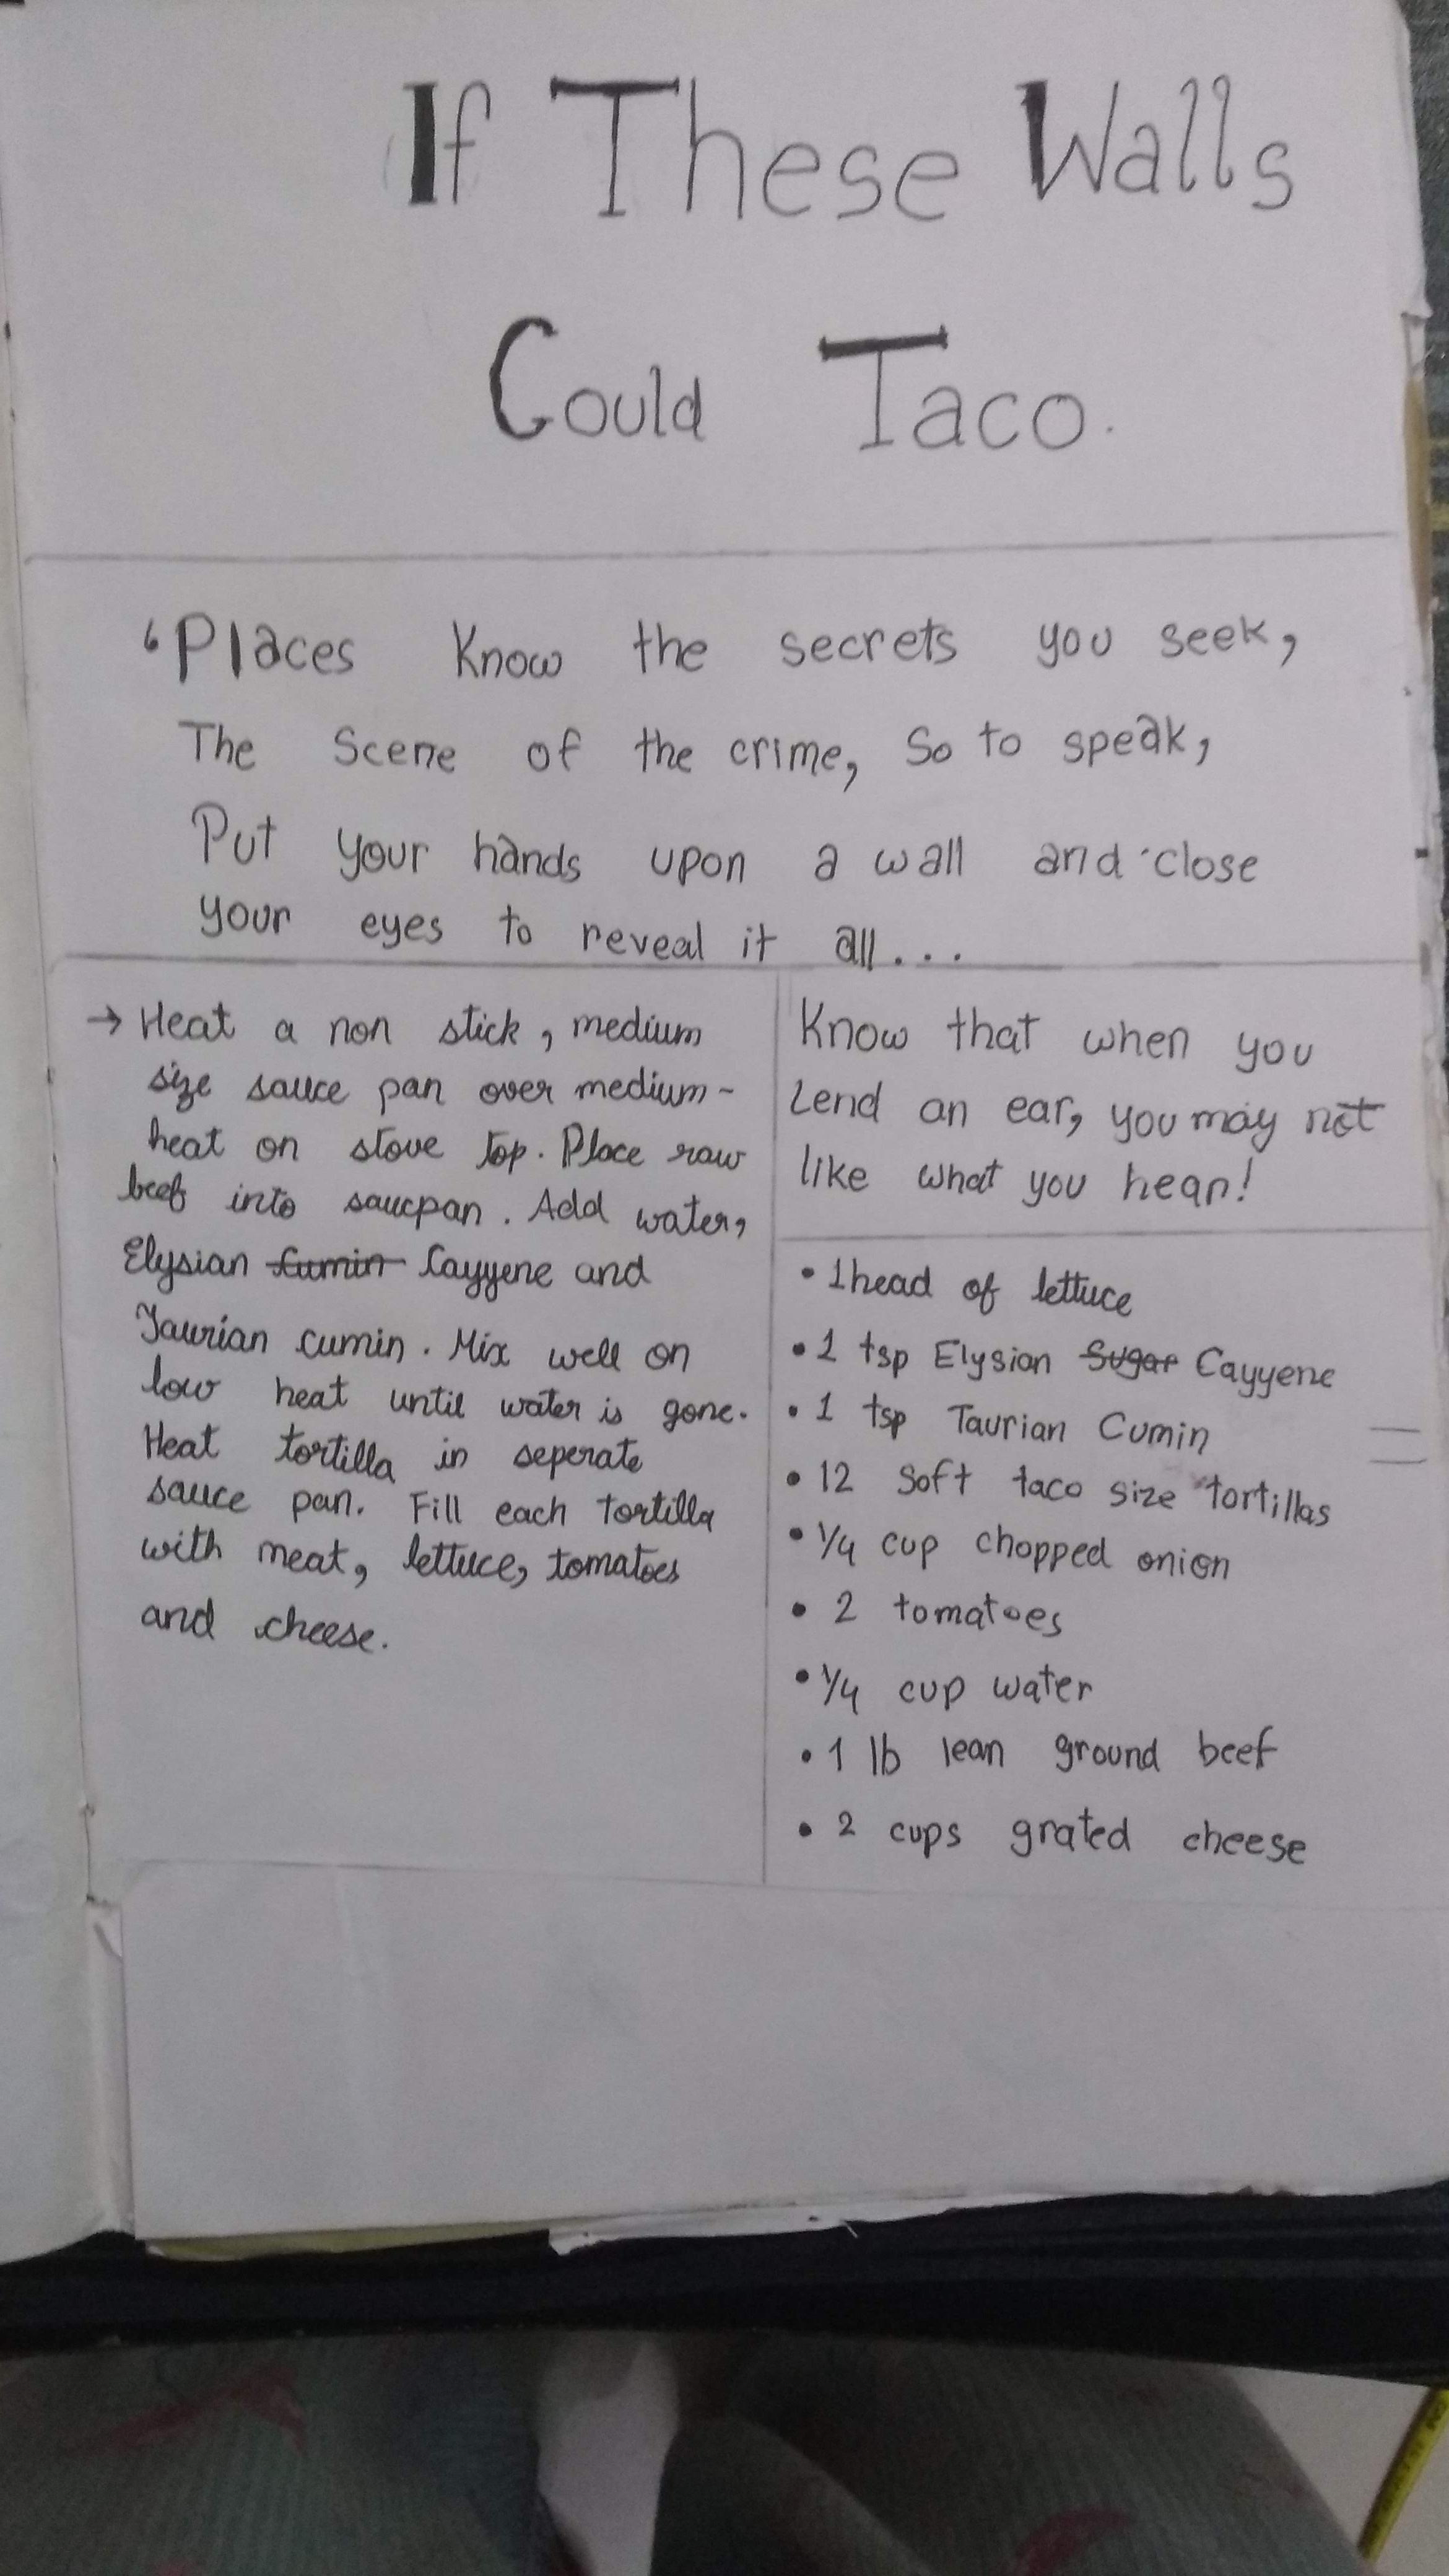 If These Walls
Could Taco.
‘Places Know the secrets you seek,
The Scene of the crime, So to speak,
Put your hands upon a wall and close
your eyes to reveal it all...
→ Heat a non stick, medium
size sauce pan over medium-
heat on stove top. Place raw
beef into saucpan. Add water,
Elysian Cumin Cayyene and
Taurian cumin. Mix well on
low heat until water is gone.
Heat tortilla in seperate
sauce pan. Fill each tortilla
with meat, lettuce, tomatoes
and cheese.
Know that when you
Lend an ear, you may not
like what you hear!
• 1 head of lettuce
• 1 tsp Elysian Sugar Cayyene
• 1 tsp Taurian Cumin
• 12 Soft taco size tortillas
• 1/4 cup chopped onion
• 2 tomatoes
• 1/4 cup water
• 1 lb lean ground beef
• 2 cups grated cheese